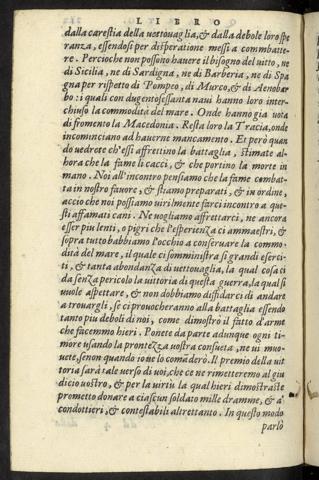 LIBRO
dalla carestia della vettouaglia, & dalla debole loro spe
ranza, essendosi per disperatione messi a commbatte-
re. Percioche non possono hauere il bisogno del uitto, ne
di Sicilia, ne di Sardigna, ne di Barberia, ne di Spa
gna per rispetto di Pompeo, di Murco, & di Aenobar
bo: i quali con dugentosessanta naui hanno loro inter-
chiuso la commodità del mare. Onde hanno gia uota
di fromento la Macedonia. Resta loro la Tracia, onde
incominciano ad hauerne mancamento. Et però quan
do uedrete ch'essi affrettino la battaglia, stimate al-
hora che la fame li cacci, & che portino la morte in
mano. Noi all'incontro pensiamo che la fame combat-
ta in nostro fauore, & stiamo preparati, & in ordine,
accio che noi possiamo uirilmente farci incontro a que-
sti affamati cani. Ne uogliamo affrettarci, ne ancora
esser piu lenti, o pigri che l'esperienza ci ammaestri, &
sopra tutto habbiamo l'occhio a conseruare la commo-
dità del mare, il quale ci somministra si grandi eserci-
ti, & tanta abondanza di uettouaglia, la qual cosa ci
da senza pericolo la uittoria di questa guerra, la qual si
uuole aspettare, & non dobbiamo diffidarci di andare
a trouargli, se ci prouocheranno alla battaglia essendo
tanto piu deboli di noi, come dimostrò il fatto d'arme
che facemmo hieri. Ponete da parte adunque ogni ti-
more usando la prontezza uostra consueta, ne ui mo-
uete, se non quando io ue lo comāderò. Il premio della uit
toria sarà tale uerso di uoi, che ce ne rimetteremo al giu
dicio uostro, & per la uirtù la qual hieri dimostraste
prometto donare a ciascun soldato mille dramme, & a'
condottieri, & contestabili altrettanto. In questo modo
parlò